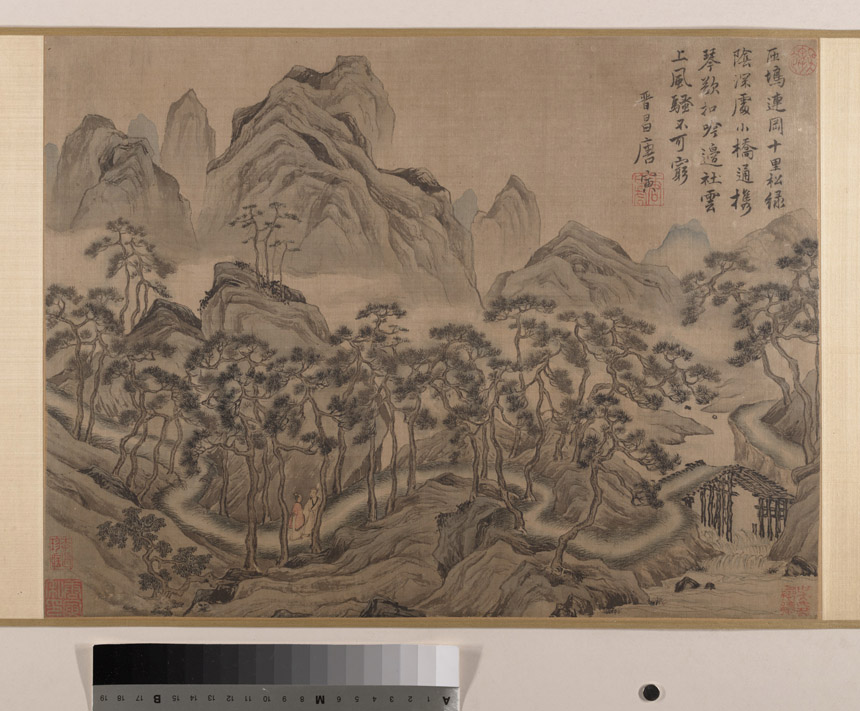 塢連岡十里松綠
陰深處小橋通攜
琴扣邊社雲
上風騷不可窮
晉昌唐寅
A 1 2 3 4 5 6 M 8 9 10 11 12 13 14 15 B 17 18 19